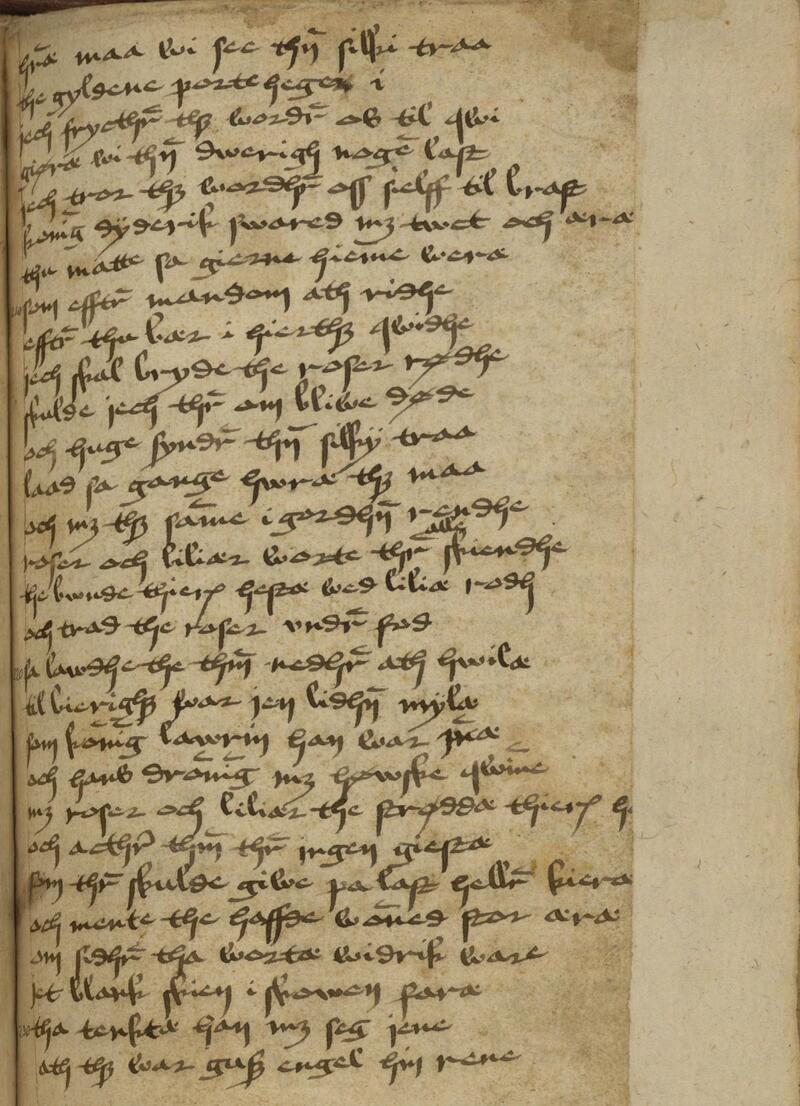 hr̄æ maa wi see thn̄ silki traa
the gyldene porte heger i
jech frycthr̄ thz wordr̄ os til qwi
giøræ wi thn̄ dwerigh nogē last
jech tror thz wordhr̄ oss sielff til brast
konīg dyderik swared mz twct och æræ
thu matte sa gierne hieme weræ
som efftr̄ mandom ath ridhe
efftr̄ thu bær i hierthz qwidhe
jech skal bryde the roser rødhe
skulde jech thr̄ om bliwe døde
och huge syndr̄ thn̄ silky traa
laad sa gange hwræ thz maa
och mz thz sāme i gordhn̄ rendhe
roser och liliær worte thr̄ alle skiendhe
the bwnde thier hestæ wed liliæ rodh
och trad the roser vndr̄ fod
sa lawdhe the thm̄ nedhr̄ ath hwilæ
til bierighz war jen lidhn̄ mylæ
som konīg lawrin han war jn̄æ
och hans dronīg mz høwske qwīne
mz roser och liliær the strøddæ thier h
och acthr̄ thm̄ thr̄ ingen giestæ
som thr̄ skulde giwe pa last hellr̄ kiera
och mente the haffde wōned stor æræ
om sidhr̄ tha wortæ widrik ware
jet blank skien i skowen faræ
tha tenktæ han mz seg jene
ath thz war guss engel hin rene